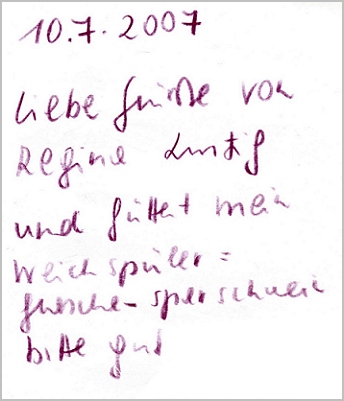 10.7.2007
Liebe Grüße von
Regine Lustig
und füttert mein
Weichspüler=
flasche-sparschwein
bitte gut